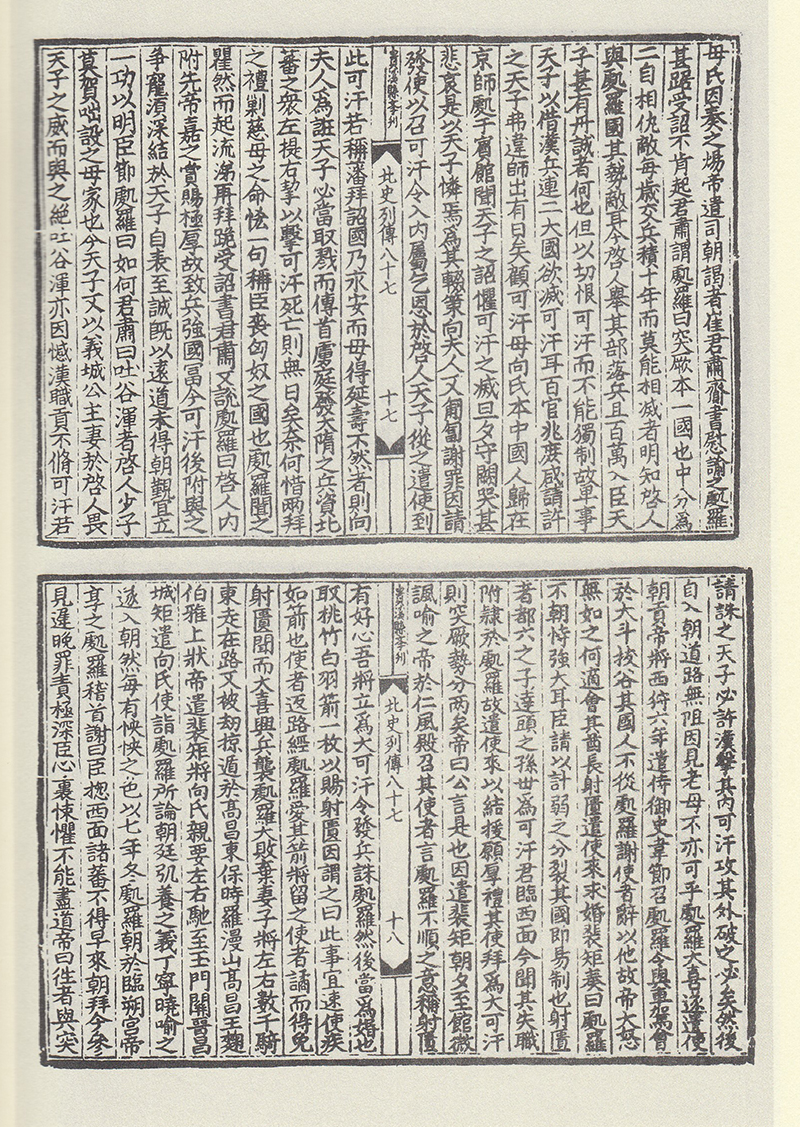 母氏因奏之煬帝遣司朝謁者崔君肅齎書慰諭之處羅
甚踞受詔不肯起君肅謂處羅曰突厥本一國也中分為
二自相仇敵每歲交兵積十年而莫能相滅者明知啓人
與處羅國其勢敵耳今啓人舉其部落兵且百萬入臣天
子甚有丹誠者何也但以切恨可汗而不能獨制故卑事
天子以借漢兵連二大國欲滅可汗耳百官兆庶咸請許
之天子弗違師出有日矣顧可汗母向氏本中國人歸在
京師處于賓館聞天子之詔懼可汗之滅旦夕守闕哭甚
悲哀是以天子憐焉為其輟策向夫人又匍匐謝罪因請
發使以召可汗令入內屬乞恩於啓人天子從之遣使到
貴溪縣李刊
北史列傳八十七
十七
此可汗若稱藩拜詔國乃永安而母得延壽不然者則向
夫人為誑天子必當取戮而傳首虜庭發大隋之兵資北
蕃之衆左提右挈以擊可汗死亡則無日矣奈何惜兩拜
之禮剿慈母之命恡一句稱臣喪匈奴之國也處羅聞之
瞿然而起流涕再拜跪受詔書君肅又說處羅曰啓人內
附先帝嘉之賞賜極厚故致兵強國富今可汗後附與之
爭寵須深結於天子自表至誠既以遠道未得朝覲宜立
一功以明臣節處羅曰如何君肅曰吐谷渾者啓人少子
莫賀咄設之母家也今天子又以義城公主妻於啓人畏
天子之威而與之絕吐谷渾亦因憾漢職貢不脩可汗若
請誅之天子必許漢擊其內可汗攻其外破之必矣然後
自入朝道路無阻因見老母不亦可乎處羅大喜遂遣使
朝貢帝將西狩六年遣侍御史韋節召處羅令與車駕會
於大斗拔谷其國人不從處羅謝使者辭以他故帝大怒
無如之何適會其酋長射匱遣使來求婚裴矩奏曰處羅
不朝恃強大耳臣請以計弱之分裂其國即易制也射匱
者都六之子達頭之孫世為可汗君臨西面今聞其失職
附隸於處羅故遣使來以結援願厚禮其使拜為大可汗
則突厥勢分兩矣帝曰公言是也因遣裴矩朝夕至館微
諷喻之帝於仁風殿召其使者言處羅不順之意稱射匱
貴溪縣李刊
北史列傳八十七
十八
有好心吾將立為大可汗令發兵誅處羅然後當為婚也
取桃竹白羽箭一枚以賜射匱因謂之曰此事宜速使疾
如箭也使者返路經處羅愛其箭將留之使者譎而得免
射匱聞而大喜興兵襲處羅大敗棄妻子將左右數千騎
東走在路又被劫掠遁於高昌東保時羅漫山高昌王麴
伯雅上狀帝遣裴矩將向氏親要左右馳至玉門關晉昌
城矩遣向氏使詣處羅所論朝廷弘養之義丁寧曉喻之
遂入朝然每有怏怏之色以七年冬處羅朝於臨朔宮帝
享之處羅稽首謝曰臣揔西面諸蕃不得早來朝拜今參
見遲晚罪責極深臣心裏悚懼不能盡道帝曰往者與突